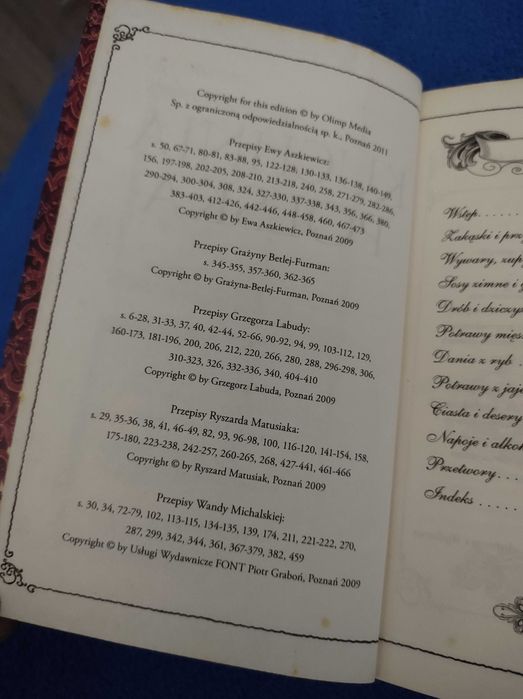 Copyright for this edition © by Olimp Media
Sp. z ograniczoną odpowiedzialnością sp. k., Poznań 2011
Przepisy Ewy Aszkiewicz:
s. 50, 67-71, 80-81, 83-88, 95, 122-128, 130-133, 136-138, 140-149,
156, 197-198, 202-205, 208-210, 213-218, 240, 258, 271-279, 282-286,
290-294, 300-304, 308, 324, 327-330, 337-338, 343, 356, 366, 380,
383-403, 412-426, 442-446, 448-458, 460, 467-473
Copyright © by Ewa Aszkiewicz, Poznań 2009
Przepisy Grażyny Betlej-Furman:
s. 345-355, 357-360, 362-365
Copyright © by Grażyna-Betlej-Furman, Poznań 2009
Przepisy Grzegorza Labudy:
s. 6-28, 31-33, 37, 40, 42-44, 52-66, 90-92, 94, 99, 103-112, 129,
160-173, 181-196, 200, 206, 212, 220, 266, 280, 288, 296-298, 306,
310-323, 326, 332-336, 340, 404-410
Copyright © by Grzegorz Labuda, Poznań 2009
Przepisy Ryszarda Matusiaka:
s. 29, 35-36, 38, 41, 46-49, 82, 93, 96-98, 100, 116-120, 141-154, 158,
175-180, 223-238, 242-257, 260-265, 268, 427-441, 461-466
Copyright © by Ryszard Matusiak, Poznań 2009
Przepisy Wandy Michalskiej:
s. 30, 34, 72-79, 102, 113-115, 134-135, 139, 174, 211, 221-222, 270,
287, 299, 342, 344, 361, 367-379, 382, 459
Copyright © by Usługi Wydawnicze FONT Piotr Graboń, Poznań 2009
Wstęp. . . . .
Zakąski i prz
Wywary, zup
Sosy zimne i g
Drób i dziczyz
Potrawy mięs
Dania z ryb . .
Potrawy z jaje
Ciasta i desery
Napoje i alkoh
Przetwory. . . .
Indeks . . . . . .